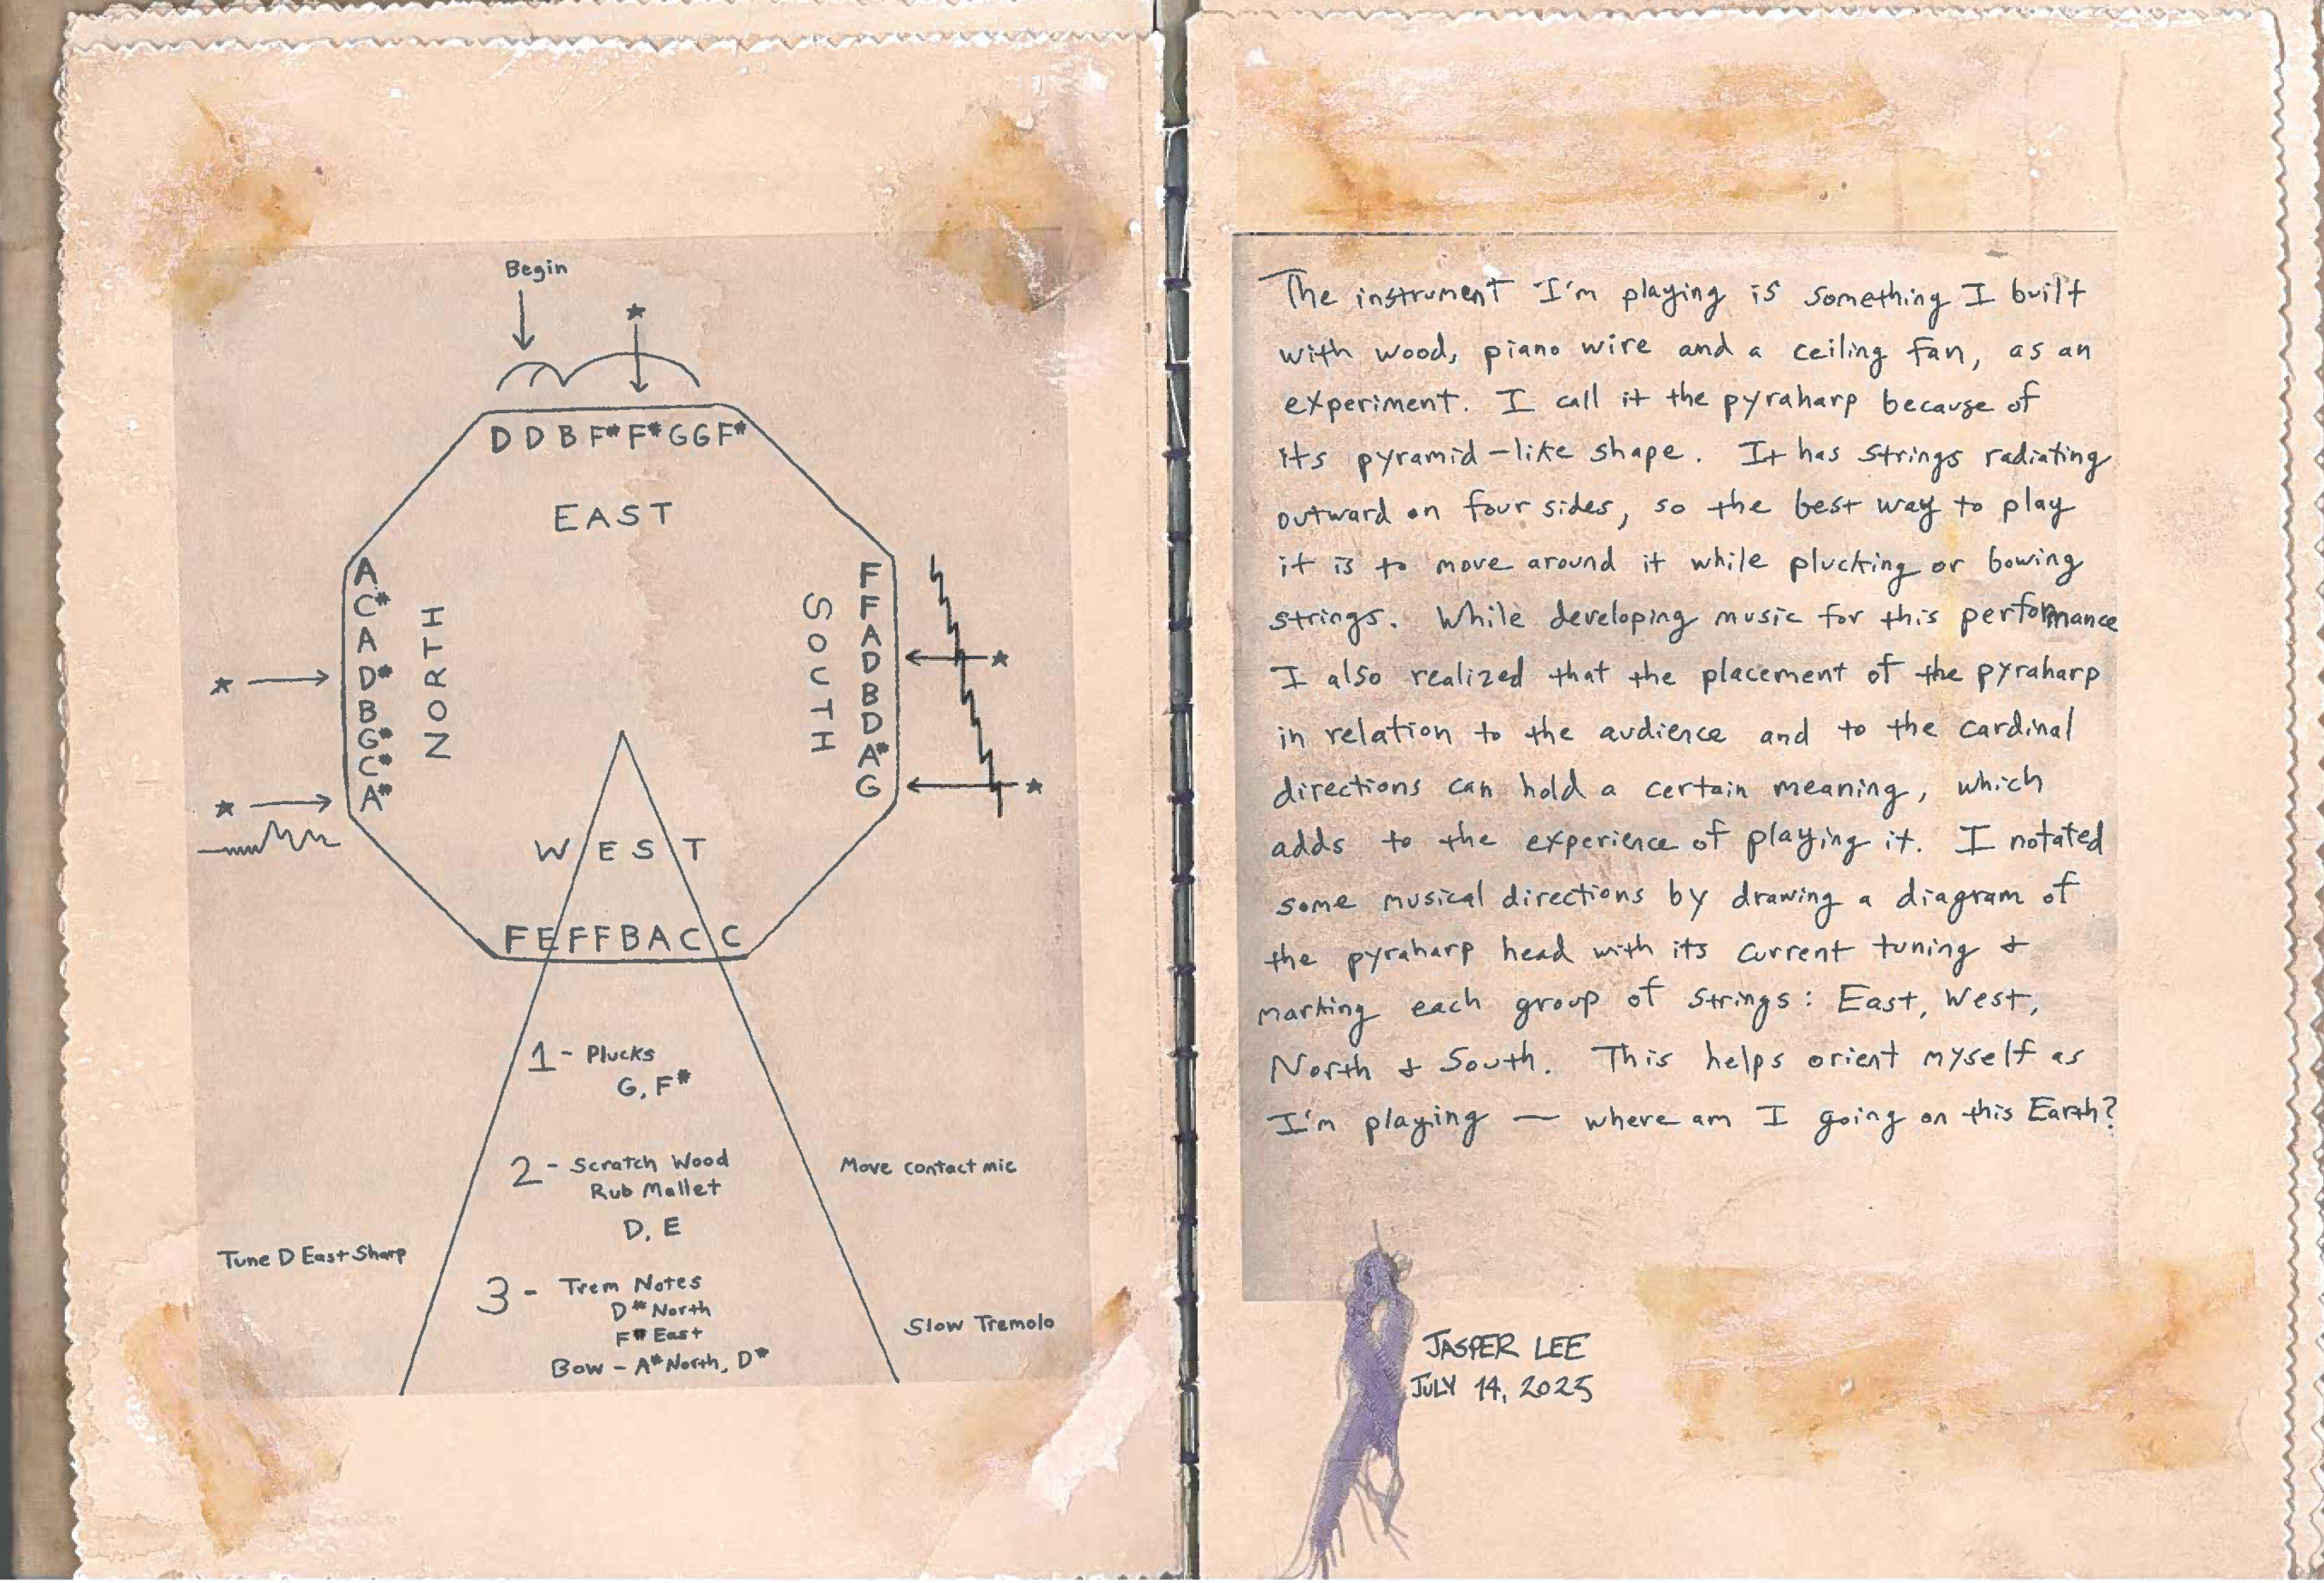 Begin
*
D D B F# F# G G F#
EAST
A
C#
A
D#
B
G#
C#
A#
NORTH
*
*
SOUTH
F
F
A
D
B
D
A#
G
*
*
WEST
F E F F B A C C
1 - Plucks
G, F#
2 - Scratch Wood
Rub Mallet
D, E
Move contact mic
Tune D East Sharp
3 - Trem Notes
D# North
F# East
Bow - A# North, D#
Slow Tremolo
The instrument I'm playing is something I built
with wood, piano wire and a ceiling fan, as an
experiment. I call it the pyraharp because of
its pyramid-like shape. It has strings radiating
outward on four sides, so the best way to play
it is to move around it while plucking or bowing
strings. While developing music for this performance
I also realized that the placement of the pyraharp
in relation to the audience and to the cardinal
directions can hold a certain meaning, which
adds to the experience of playing it. I notated
some musical directions by drawing a diagram of
the pyraharp head with its current tuning &
marking each group of strings: East, West,
North & South. This helps orient myself as
I'm playing — where am I going on this Earth?
JASPER LEE
JULY 14, 2025